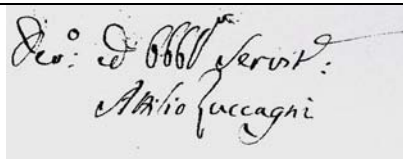 Dev.º: ed Obb.mo Servit.e:
Attilio Zuccagni